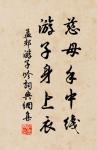 慈母手中线
游子身上衣
孟郊游子吟词典网集